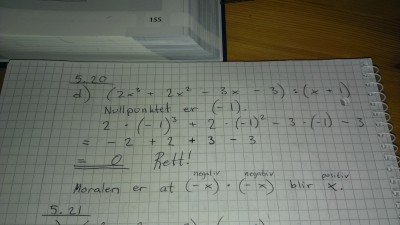 155
5.20
d) (2x³ + 2x² - 3x - 3) : (x + 1)
Nullpunktet er (-1).
2 · (-1)³ + 2 · (-1)² - 3 · (-1) - 3
= -2 + 2 + 3 - 3
= 0 Rett!
negativ negativ positiv
Moralen er at (-x) · (-x) blir x.
5.21